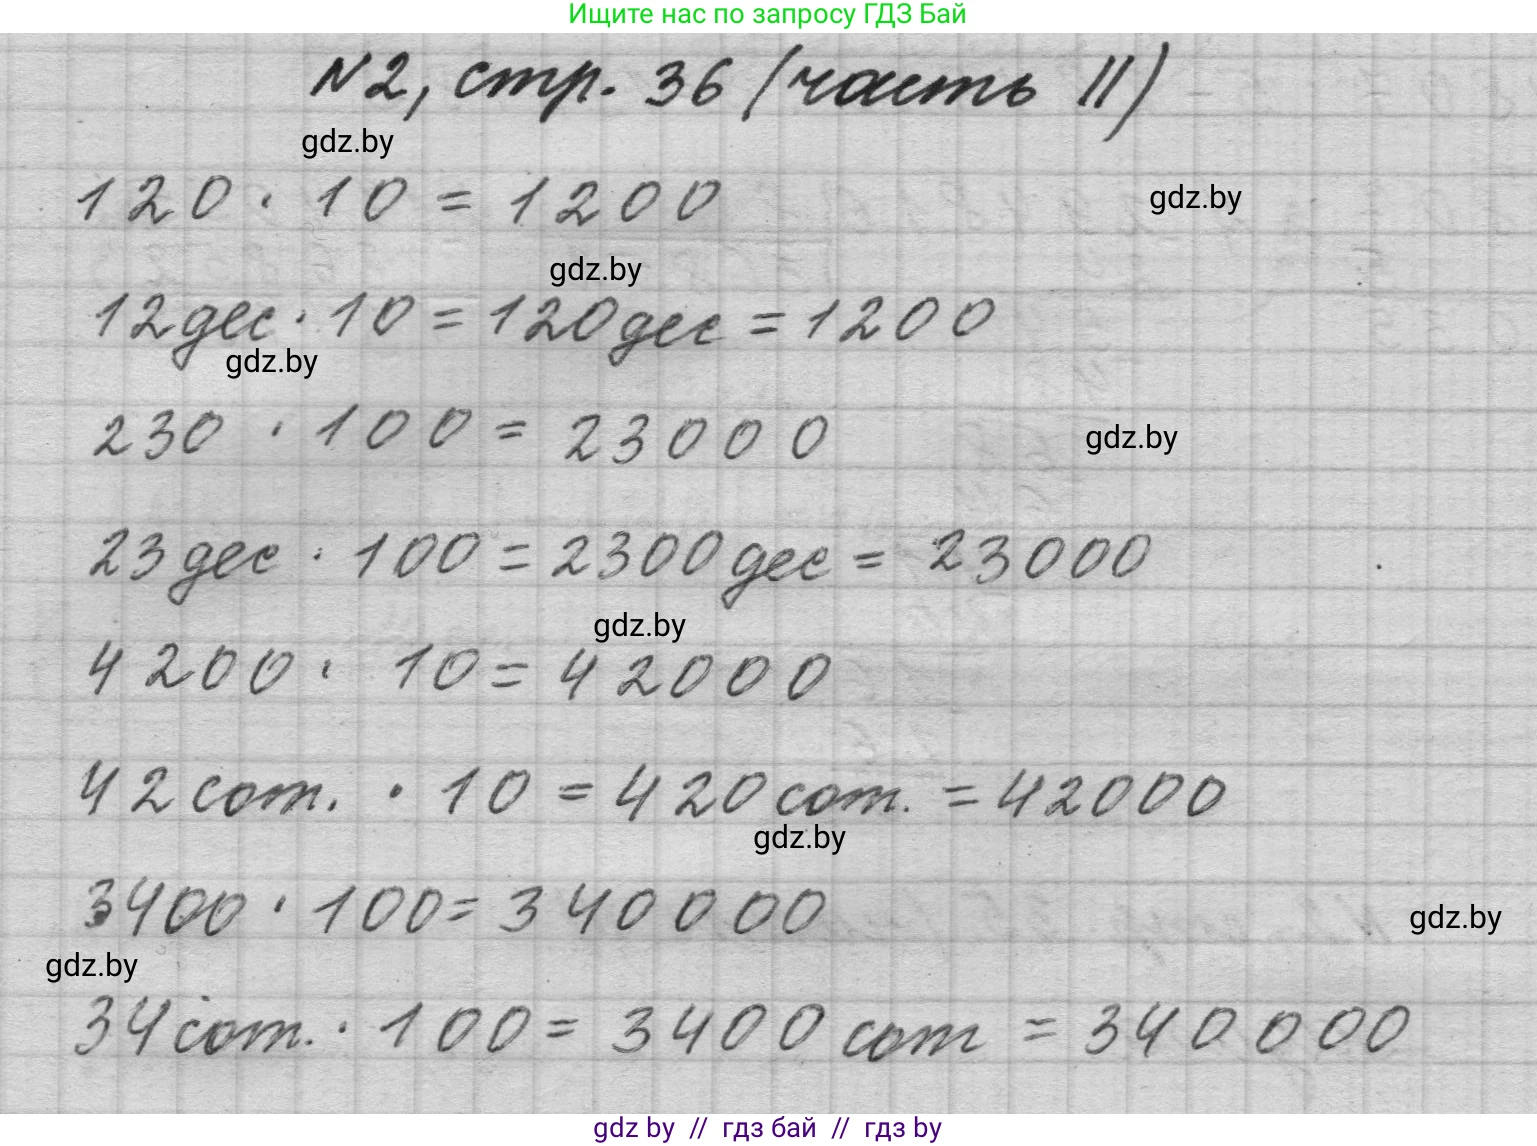 Ищите нас по запросу ГДЗ Бай
N2, стр. 36 (часть II)
gdz.by
120 · 10 = 1200
gdz.by
gdz.by
12дес · 10 = 120дес = 1200
gdz.by
230 · 100 = 23000
gdz.by
23дес · 100 = 2300дес = 23000
gdz.by
4200 · 10 = 42000
42 сот. · 10 = 420 сот. = 42000
gdz.by
3400 · 100 = 340000
gdz.by
gdz.by
34 сот. · 100 = 3400 сот = 340000
gdz by // гдз бай // гдз by